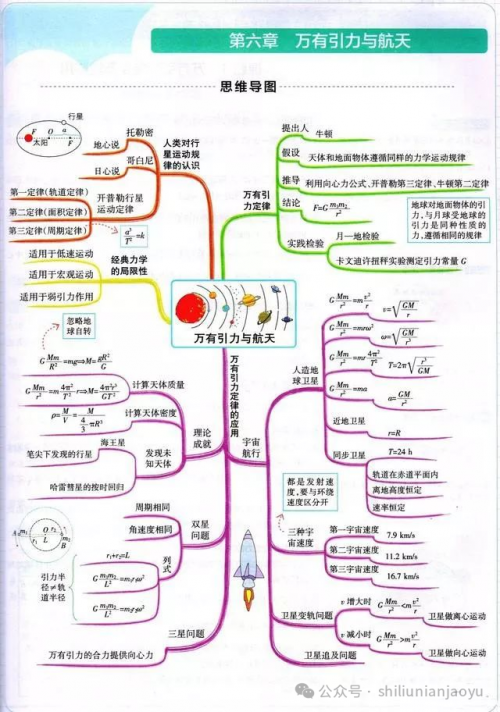 第六章 万有引力与航天
思维导图
行星
F O a F
太阳
托勒密
地心说
哥白尼
日心说
人类对行
星运动规
律的认识
第一定律(轨道定律)
第二定律(面积定律)
第三定律(周期定律)
开普勒行星
运动定律
a³/T²=k
适用于低速运动
适用于宏观运动
适用于弱引力作用
经典力学
的局限性
提出人
牛顿
假设
天体和地面物体遵循同样的力学运动规律
推导
利用向心力公式、开普勒第三定律、牛顿第二定律
结论
F=G m₁m₂/r²
万有引
力定律
地球对地面物体的引
力,与月球受地球的
引力是同种性质的
力,遵循相同的规律
实践检验
月—地检验
卡文迪许扭秤实验测定引力常量 G
万有引力与航天
忽略地
球自转
G Mm/R²=mg⇒M=gR²/G
G Mm/r²=m 4π²/T² r⇒M=4π²r³/GT²
计算天体质量
ρ=M/V=M/(4/3 πR³)
计算天体密度
海王星
笔尖下发现的行星
哈雷彗星的按时回归
发现未
知天体
理论
成就
万有引力定律的应用
宇宙
航行
人造地
球卫星
G Mm/r²=m v²/r
v=√(GM/r)
G Mm/r²=mrω²
ω=√(GM/r³)
G Mm/r²=mr 4π²/T²
T=2π√(r³/GM)
G Mm/r²=ma
a=GM/r²
近地卫星
r=R
同步卫星
T=24 h
轨道在赤道平面内
离地高度恒定
速率恒定
都是发射速
度,要与环绕
速度区分开
三种宇
宙速度
第一宇宙速度
7.9 km/s
第二宇宙速度
11.2 km/s
第三宇宙速度
16.7 km/s
卫星变轨问题
v 增大时
G Mm/r²<m v²/r
卫星做离心运动
v 减小时
G Mm/r²>m v²/r
卫星做向心运动
卫星追及问题
周期相同
角速度相同
双星
问题
r₁+r₂=L
列
式
引力半
径≠轨
道半径
三星问题
万有引力的合力提供向心力
公众号 · shiliunianjaoyu